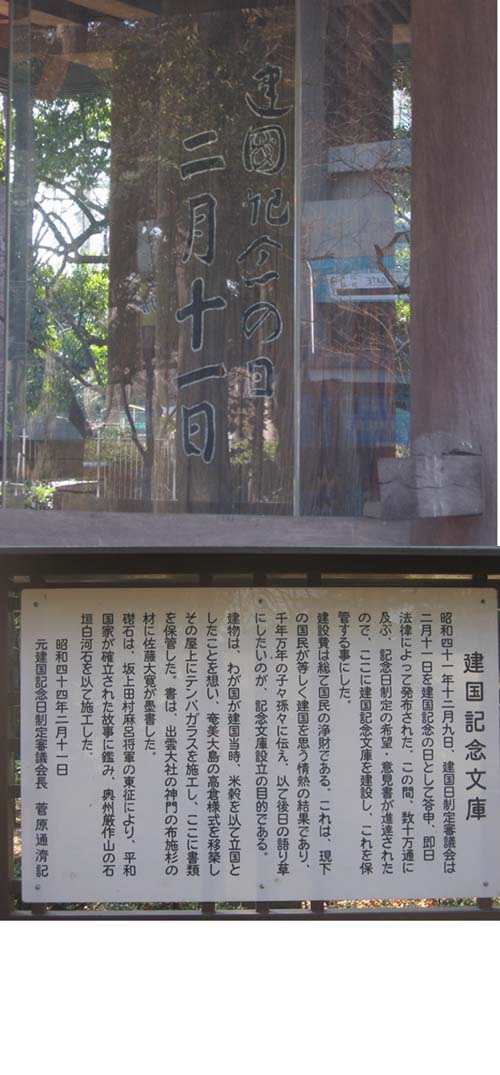 建國記念の日
二月十一日
建国記念文庫
昭和四十一年十二月九日、建国日制定審議会は
二月十一日を建国記念の日として答申、即日
法律によって発布された。この間、数十万通に
及ぶ、記念日制定の希望・意見書が進達された
ので、ここに建国記念文庫を建設し、これを保
管する事にした。
建設費は総て国民の浄財である。これは、現下
の国民が等しく建国を思う情熱の結果であり、
千年万年の子々孫々に伝え、以て後日の語り草
にしたいのが、記念文庫設立の目的である。
建物は、わが国が建国当時、米穀を以て立国と
したことを想い、奄美大島の高倉様式を移築し
その屋上にテンパガラスを施工し、ここに書類
を保管した。書は、出雲大社の神門の布施杉の
材に佐藤大寛が墨書した。
礎石は、坂上田村麻呂将軍の東征により、平和
国家が確立された故事に鑑み、奥州厳作山の石
垣白河石を以て施工した。
昭和四十四年二月十一日
元建国記念日制定審議会長 菅原通濟記
GATE